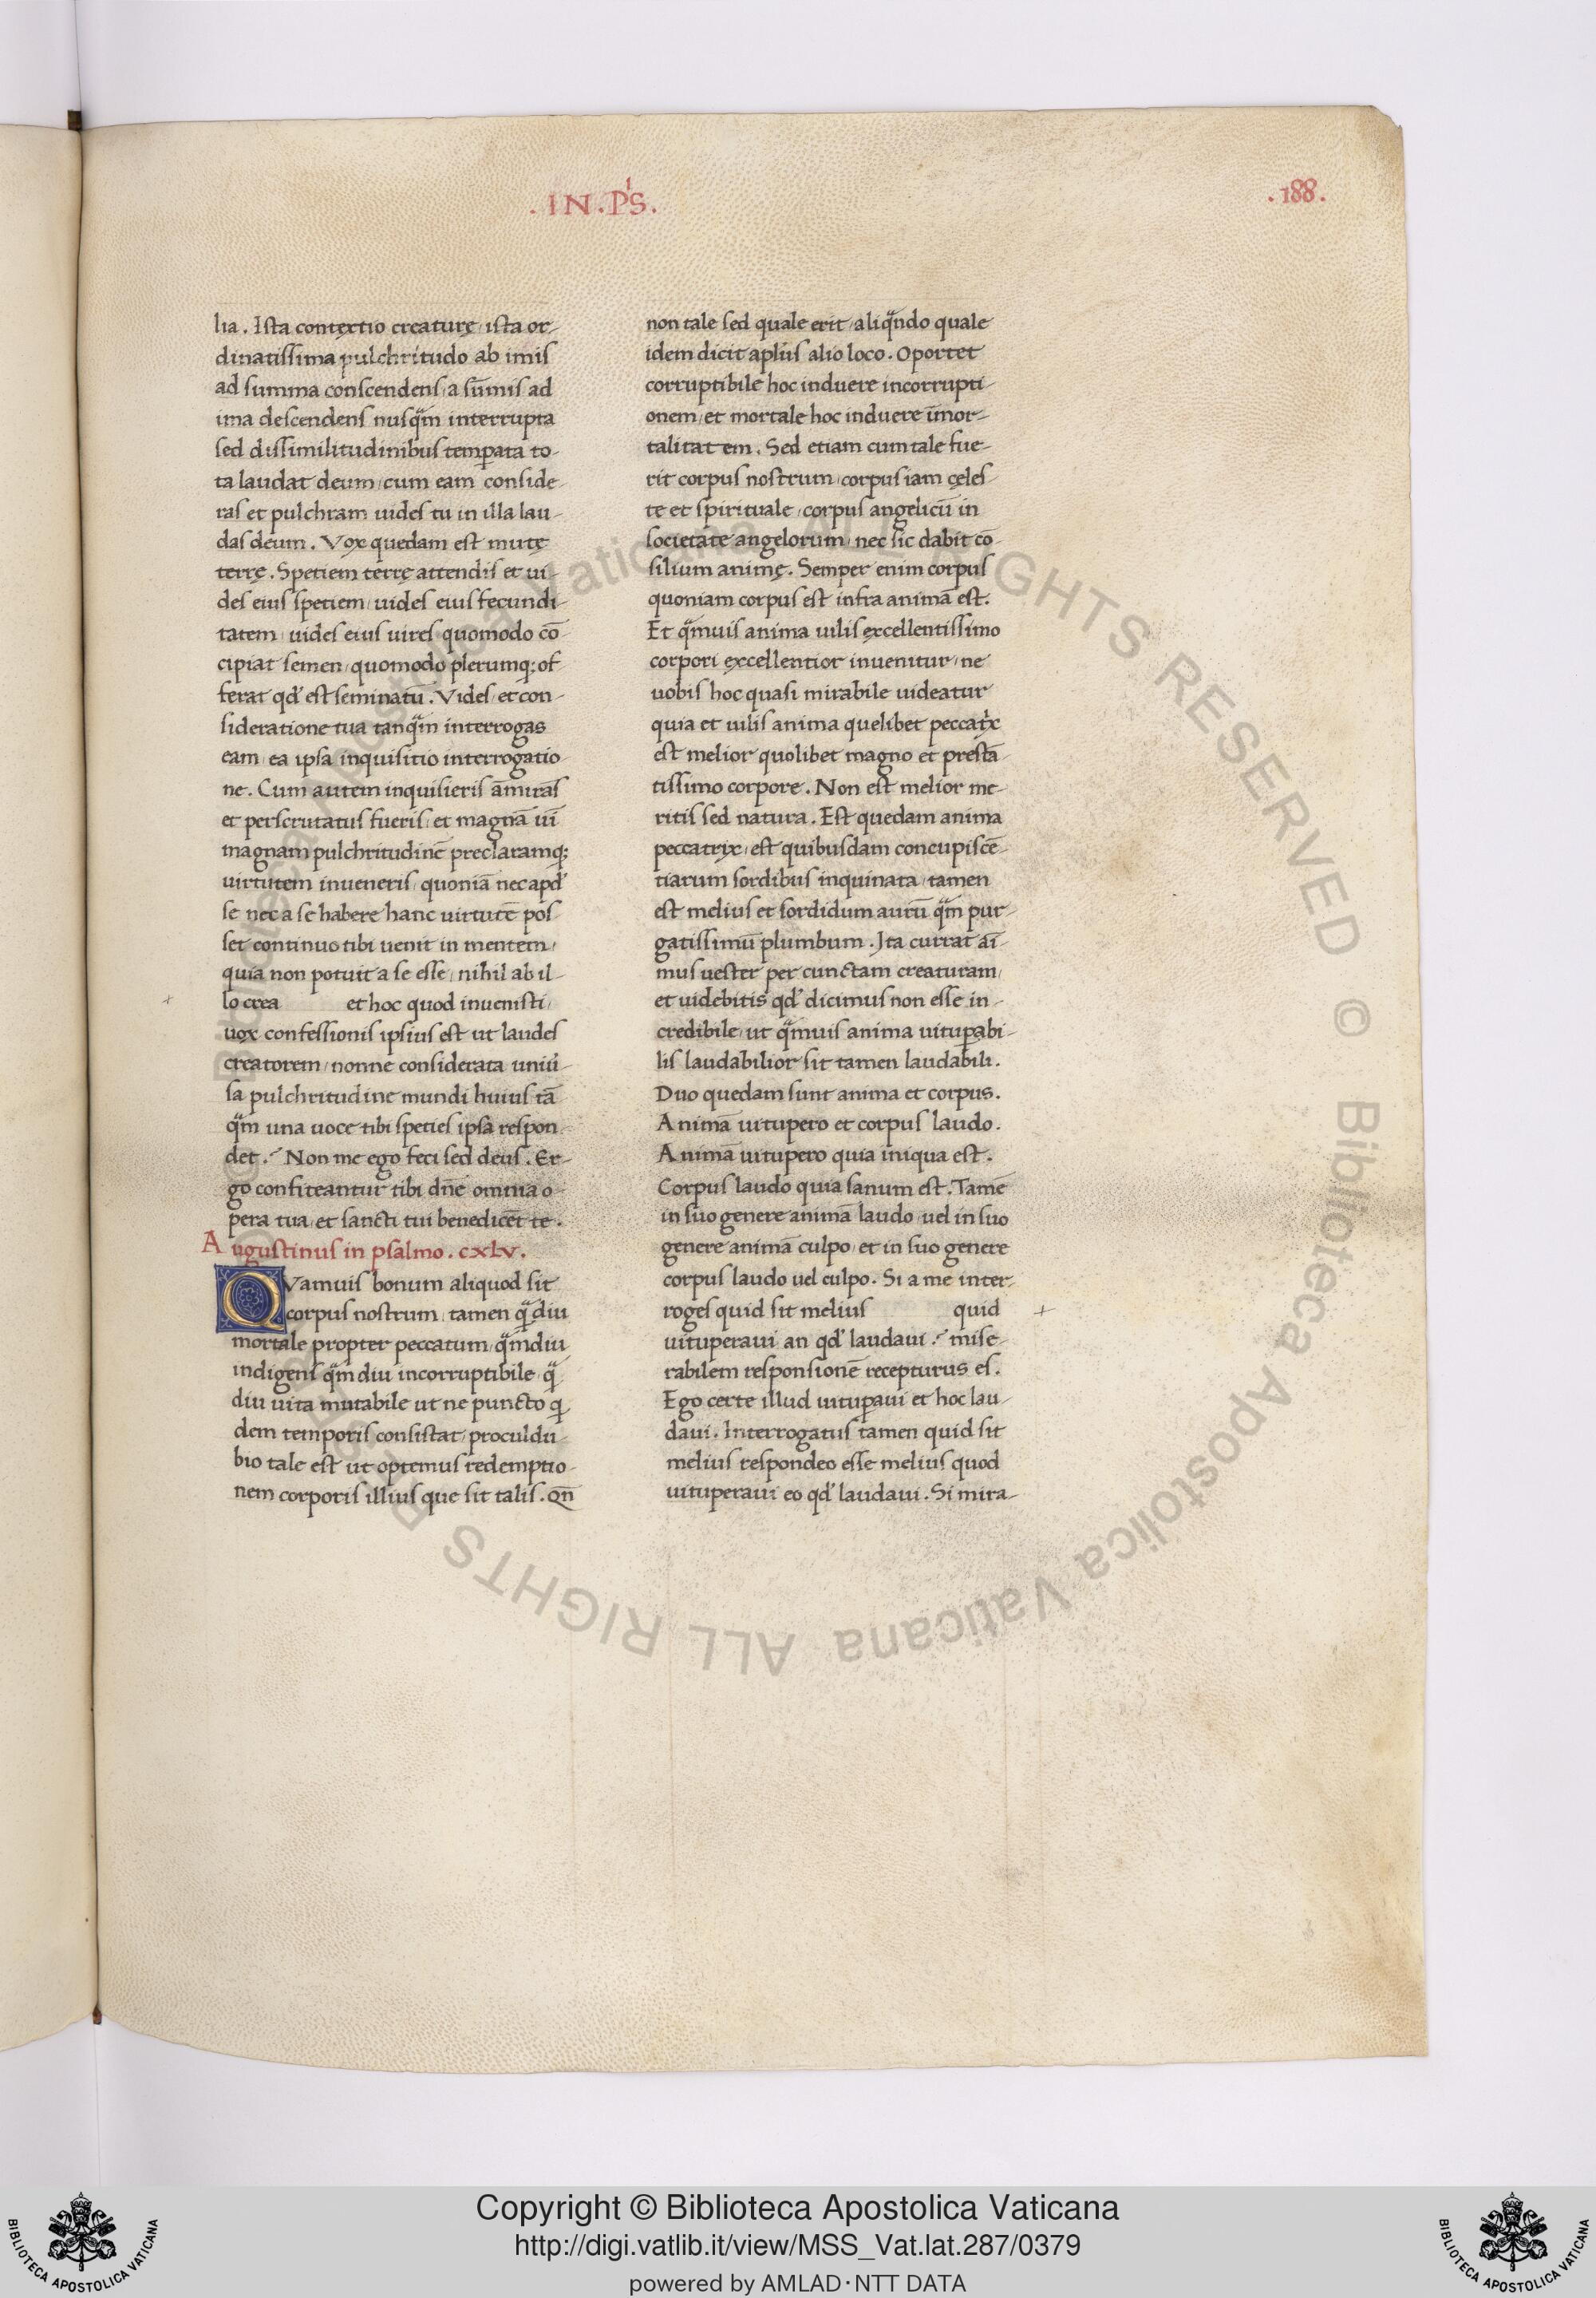 . IN . Pˡs .
. 188 .
lia . Ista contęxtio creaturę / ista or-
dinatissima pulchritudo ab imis
ad summa conscendens / a sūmis ad
ima descendens nusq̈m interrupta
sed dissimilitudinibus temꝑata to-
ta laudat deum / cum eam conside-
ras et pulchram uides tu in illa lau-
das deum . Vox quedam est mutę
terrę . Spetiem terrę attendis et ui-
des eius spetiem / uides eius fecundi-
tatem / uides eius uires quomodo cō-
cipiat semen / quomodo plerumq; of-
ferat qd' est seminatū . Vides / et con-
sideratione tua tanq̈m interrogas
eam / ea ipsa inquisitio interrogatio-
ne . Cum autem inquisieris āmirās
et perscrutatus fueris / et magnā uī
magnam pulchritudinē preclaramq;
uirtutem inueneris / quoniā nec apd'
se nec a se habere hanc uirtutē pos-
set continuo tibi uenit in mentem /
quia non potuit a se esse / nihil ab il-
lo crea et hoc quod inuenisti /
uox confessionis ipsius est ut laudes
creatorem / nonne considerata uniu̓-
sa pulchritudine mundi huius tā
q̈m una uoce tibi speties ipsa respon-
det .᷎ Non me ego feci sed deus . Er-
go confiteantur tibi dn̄e omnia o-
pera tua / et sancti tui benedicēt te .
Augustinus in psalmo . cxlv .
QVamuis bonum aliquod sit
corpus nostrum / tamen q̈̄diu
mortale propter peccatum / q̈mdiu
indigens q̈m diu incorruptibile q̈̄
diu uita mutabile ut ne puncto qͥ
dem temporis consistat / proculdu-
bio tale est ut optemus redemptio-
nem corporis illius que sit talis . Qn̄
non tale sed quale erit / aliq̈ndo quale
idem dicit apl̓us alio loco . Oportet
corruptibile hoc induere incorrupti-
onem / et mortale hoc induere īmor-
talitatem . Sed etiam cum tale fue-
rit corpus nostrum / corpus iam cęles-
te et spirituale / corpus angelicū in
societate angelorum / nec sic dabit cō-
silium animę . Semper enim corpus
quoniam corpus est infra animā est .
Et q̈muis anima uilis excellentissimo
corpori excellentior inuenitur / ne
uobis hoc quasi mirabile uideatur
quia et uilis anima quelibet peccatͥx
est melior quolibet magno et prestā-
tissimo corpore . Non est melior me-
ritis sed natura . Est quedam anima
peccatrix / est quibusdam concupiscē-
tiarum sordibus inquinata / tamen
est melius et sordidum aurū q̈m pur-
gatissimū plumbum . Ita currat aī-
mus uester per cunctam creaturam /
et uidebitis qd' dicimus non esse in-
credibile / ut q̈muis anima uituꝑabi-
lis laudabilior sit tamen laudabili .
Duo quedam sunt anima et corpus .
Animā uitupero et corpus laudo .
Animā uitupero quia iniqua est .
Corpus laudo quia sanum est . Tamē
in suo genere animā laudo / uel in suo
genere animā culpo / et in suo genere
corpus laudo uel culpo . Si a me inter-
roges quid sit melius quid
uituperaui an qd' laudaui .᷎ mise-
rabilem responsionē recepturus es .
Ego certe illud uituꝑaui et hoc lau-
daui . Interrogatus tamen quid sit
melius respondeo esse melius quod
uituperaui eo qd' laudaui . Si mira-
Copyright © Biblioteca Apostolica Vaticana
http://digi.vatlib.it/view/MSS_Vat.lat.287/0379
powered by AMLAD·NTT DATA
BIBLIOTECA APOSTOLICA VATICANA
BIBLIOTECA APOSTOLICA VATICANA
© Biblioteca Apostolica Vaticana ALL RIGHTS RESERVED © Biblioteca Apostolica Vaticana ALL RIGHTS RESERVED